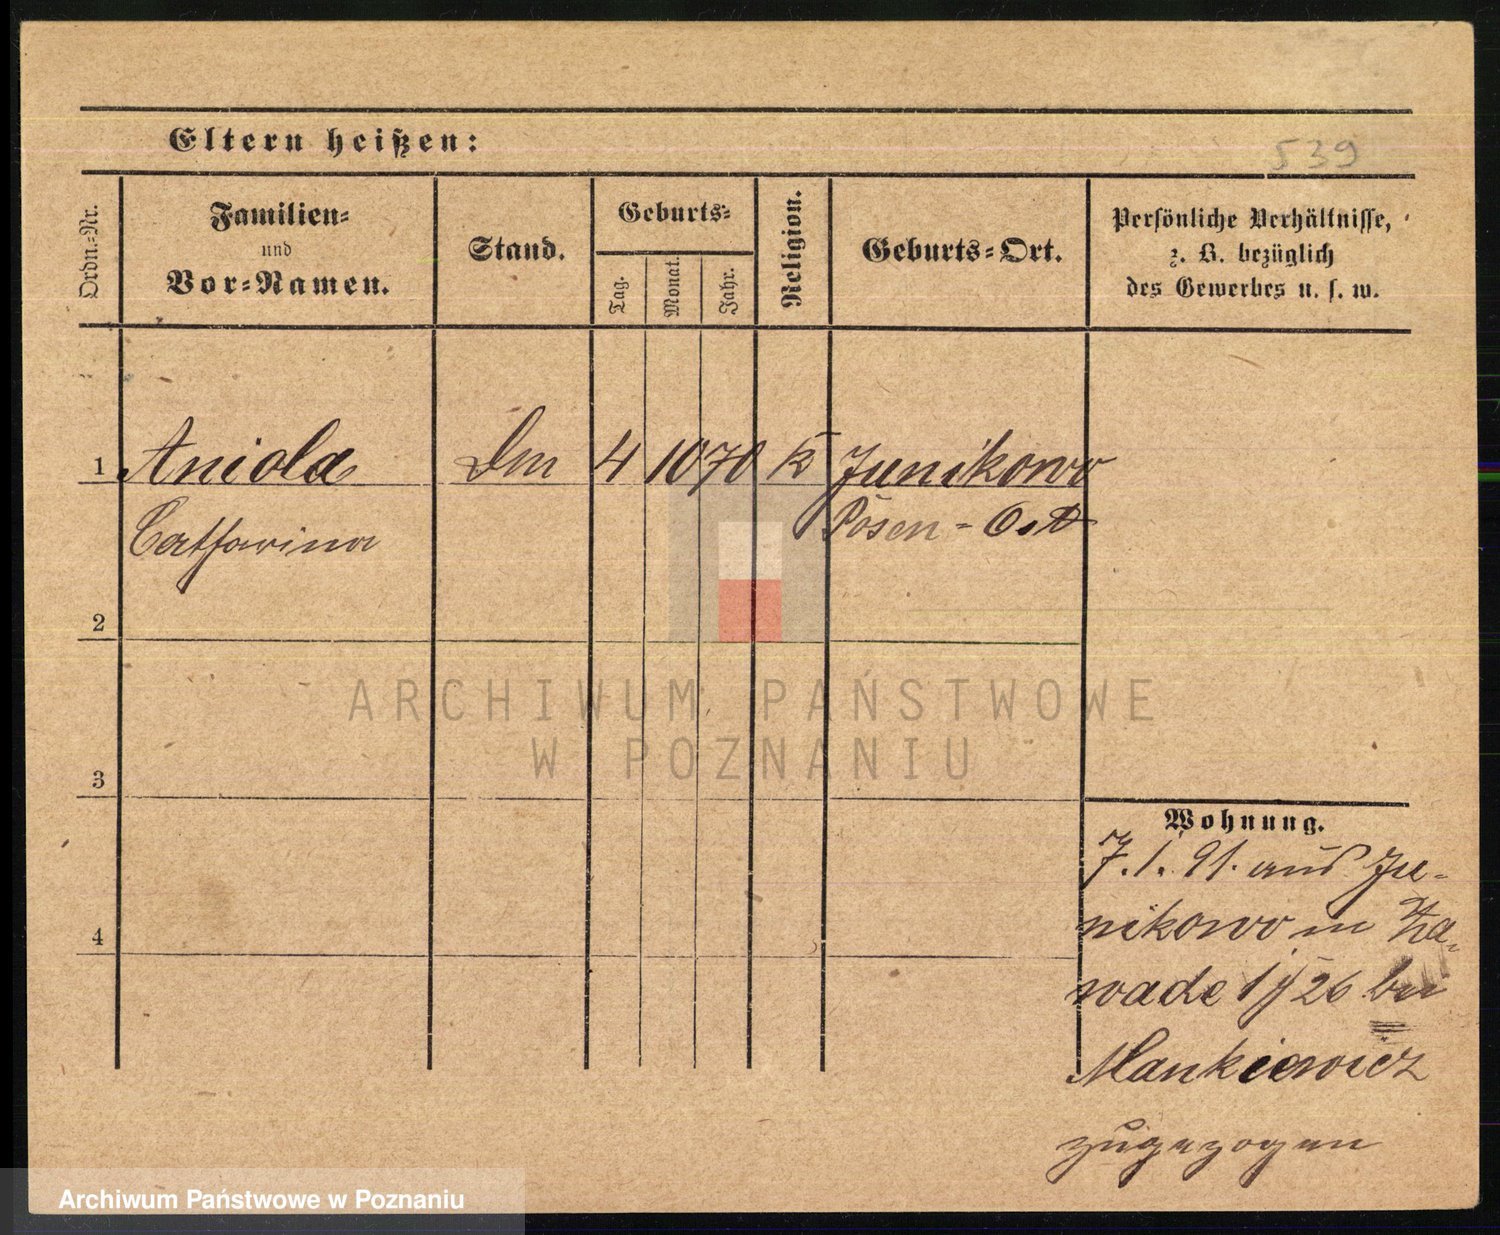 Eltern heißen:
539
Ordn.-Nr.
Familien-
und
Vor-Namen.
Stand.
Geburts-
Tag.
Monat.
Jahr.
Religion.
Geburts-Ort.
Persönliche Verhältnisse,
z. B. bezüglich
des Gewerbes u. s. w.
1 Aniola Dm 4 10 70 k Junikowo
Catharina Posen-Ost
2
3
4
Wohnung.
7.1.91. aus Ju-
nikowo in Za-
wade 1/26 bei
Mankiewicz
zugezogen
ARCHIWUM PAŃSTWOWE
W POZNANIU
Archiwum Państwowe w Poznaniu